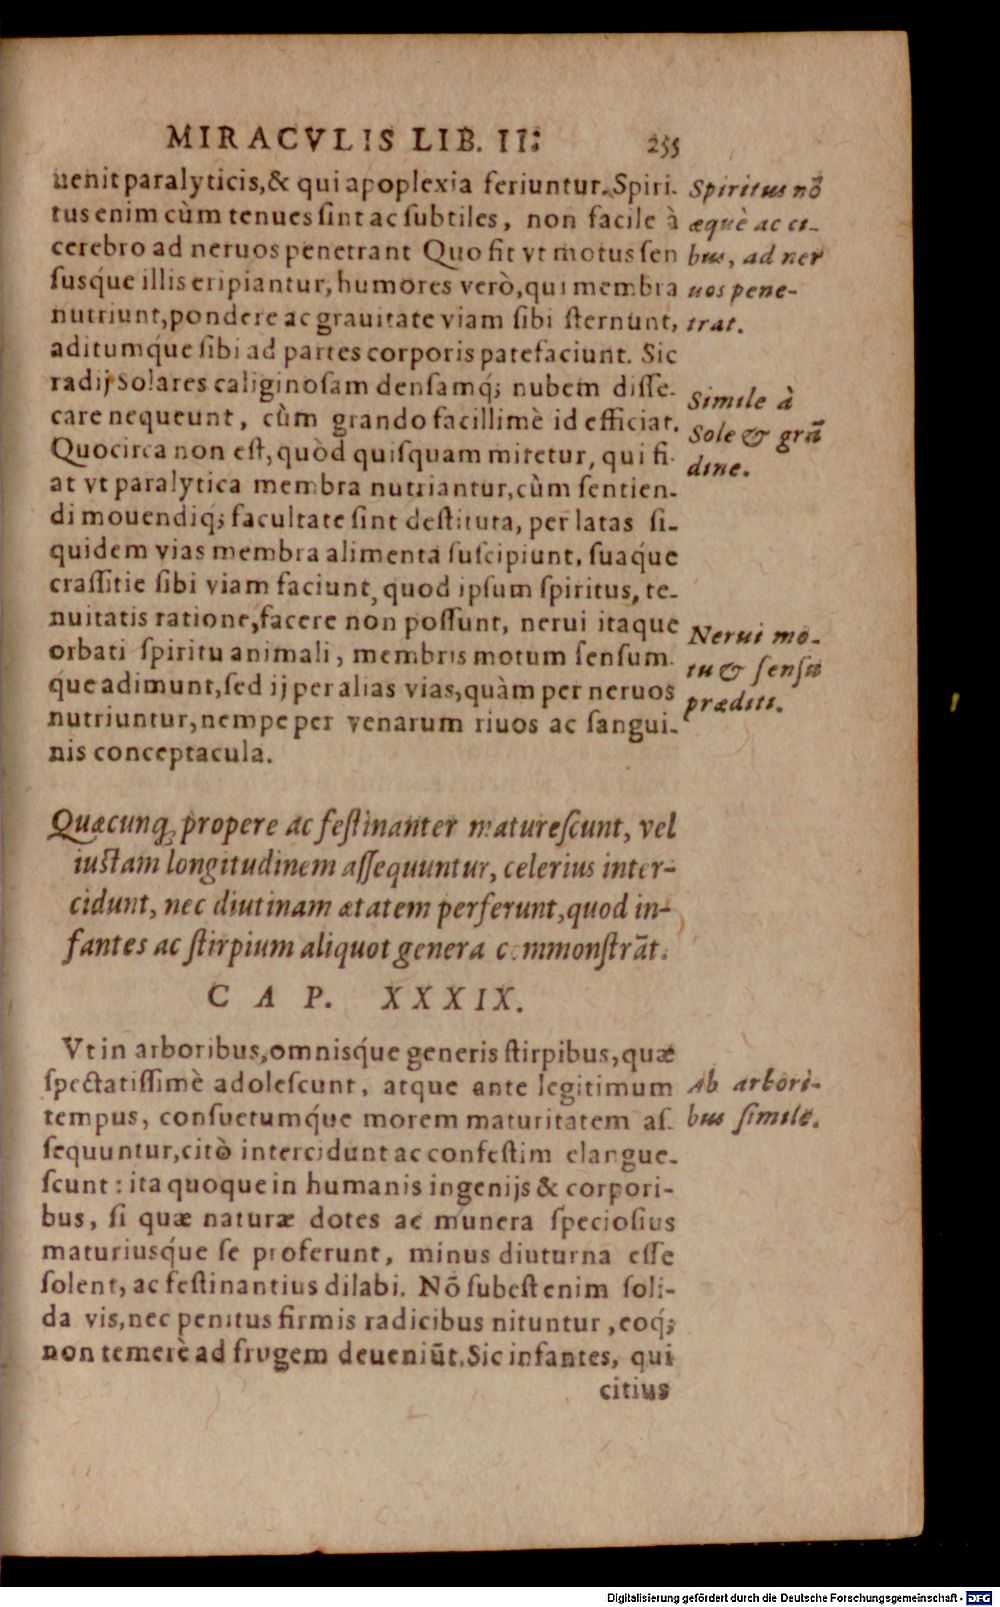 MIRACVLIS LIB. II: 255
uenit paralyticis, & qui apoplexia feriuntur. Spiri-
tus enim cùm tenues ſint ac ſubtiles, non facile à
cerebro ad neruos penetrant Quo fit vt motus ſen
ſusq́ue illis eripiantur, humores verò, qui membra
nutriunt, pondere ac grauitate viam ſibi ſternunt,
aditumq́ue ſibi ad partes corporis patefaciunt. Sic
radij Solares caliginoſam denſamq́; nubem diſſe-
care nequeunt, cùm grando facillimè id efficiat.
Quocirca non eſt, quòd quiſquam miretur, qui fi-
at vt paralytica membra nutriantur, cùm ſentien-
di mouendiq́; facultate ſint deſtituta, per latas ſi-
quidem vias membra alimenta ſuſcipiunt, ſuaq́ue
craſſitie ſibi viam faciunt, quod ipſum ſpiritus, te-
nuitatis ratione, facere non poſſunt, nerui itaque
orbati ſpiritu animali, membris motum ſenſum-
que adimunt, ſed ij per alias vias, quàm per neruos
nutriuntur, nempe per venarum riuos ac ſangui-
nis conceptacula.
Spiritus nō
æquè ac ci-
bus, ad ner
uos pene-
trat.
Simile à
Sole & grā
dine.
Nerui mo-
tu & ſenſu
præditi.
Quæcunq; propere ac feſtinanter matureſcunt, vel
iuſtam longitudinem aſſequuntur, celerius inter-
cidunt, nec diutinam ætatem perferunt, quod in-
fantes ac ſtirpium aliquot genera commonſtrāt.
CAP. XXXIX.
Vt in arboribus, omnisq́ue generis ſtirpibus, quæ
ſpectatiſſimè adoleſcunt, atque ante legitimum
tempus, conſuetumq́ue morem maturitatem aſ-
ſequuntur, citò intercidunt ac confeſtim elangue-
ſcunt: ita quoque in humanis ingenijs & corpori-
bus, ſi quæ naturæ dotes ac munera ſpecioſius
maturiusq́ue ſe proferunt, minus diuturna eſſe
ſolent, ac feſtinantius dilabi. Nō ſubeſt enim ſoli-
da vis, nec penitus firmis radicibus nituntur, eoq́;
non temerè ad frugem deueniūt. Sic infantes, qui
citius
Ab arbori-
bus ſimile.
Digitalisierung gefördert durch die Deutsche Forschungsgemeinschaft - DFG